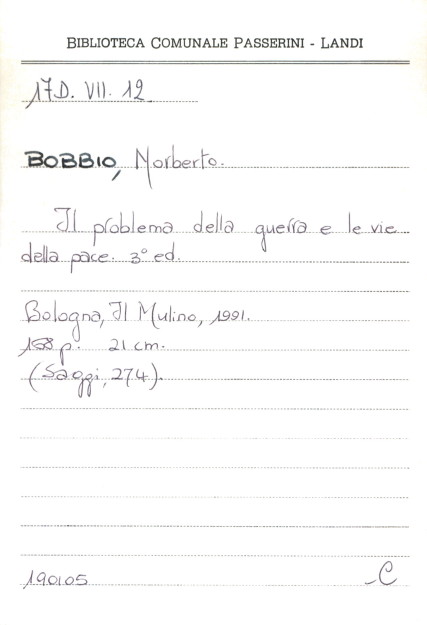 BIBLIOTECA COMUNALE PASSERINI - LANDI
17D. VII. 12
BOBBIO, Norberto.
Il problema della guerra e le vie
della pace. 3° ed.
Bologna, Il Mulino, 1991.
p. 21 cm.
(Saggi, 274).
190105
C